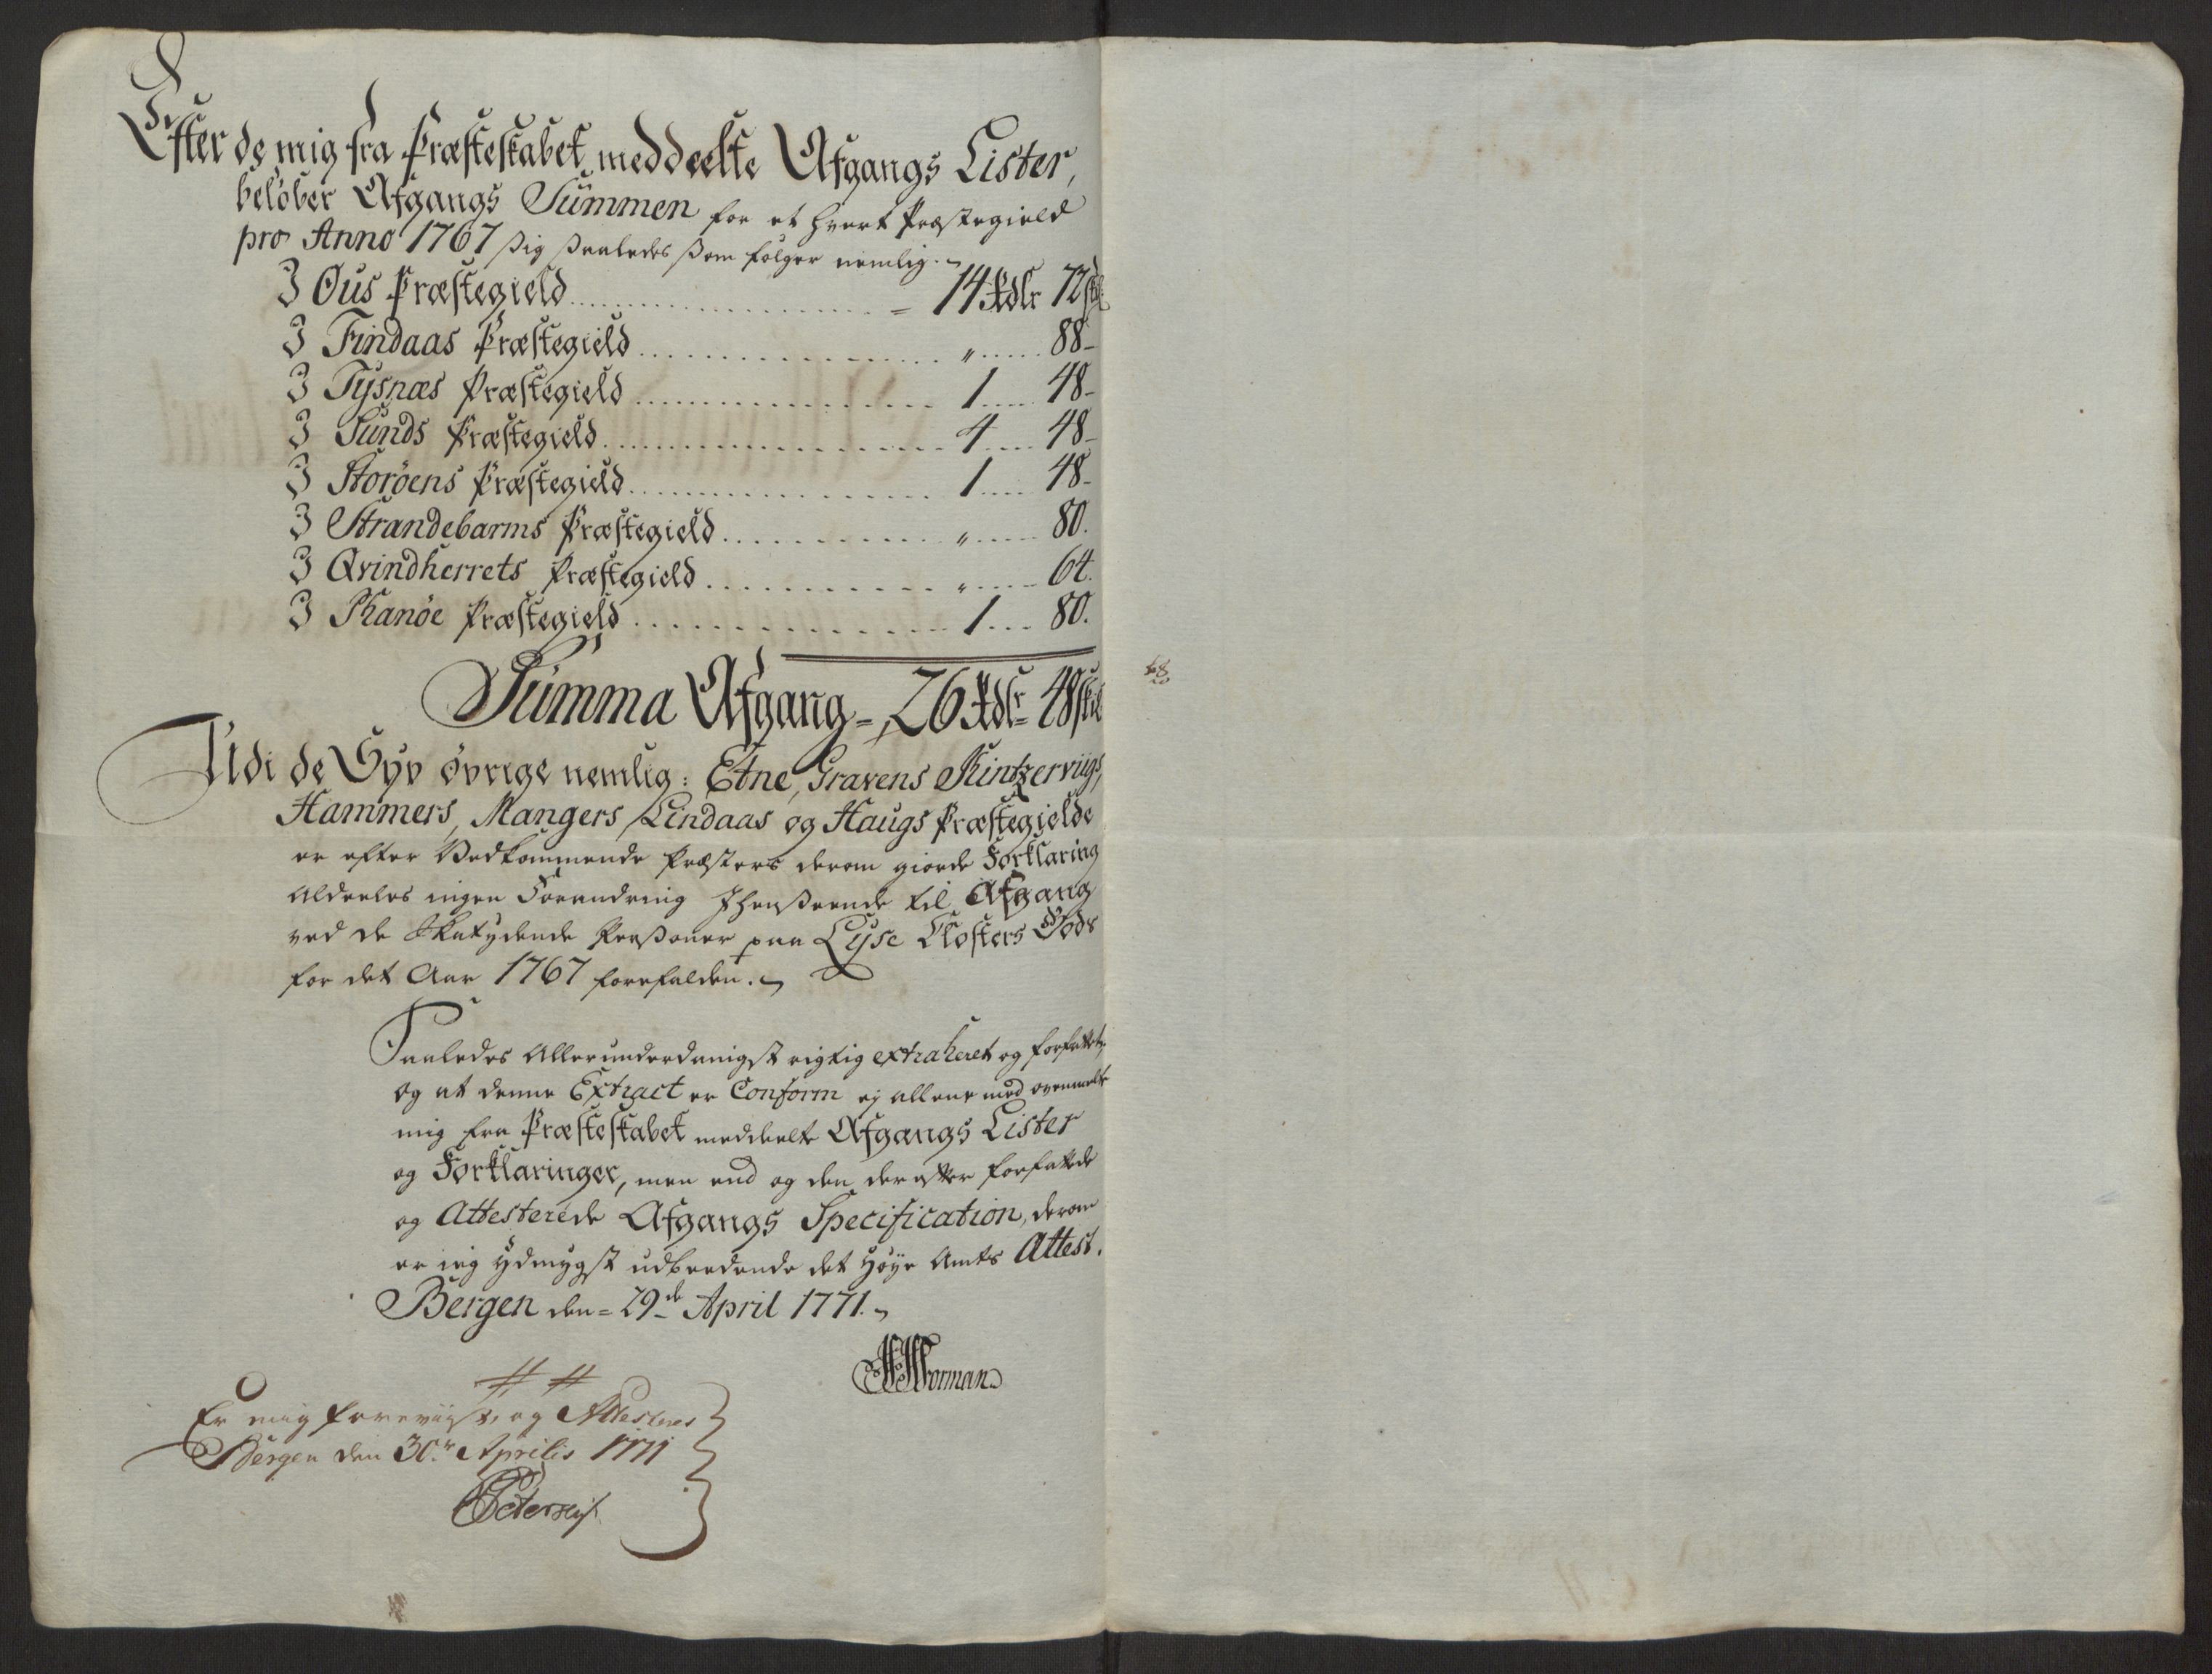 Efter de mig fra Præsteskabet meddeelte Afgangs Lister,
beløber Afgangs Summen for et hvert Præstegield
pro Anno 1767 sig saaledes som følger nemlig.
I Ous Præstegield - 14 Rdlr 72 sk
I Findaas Præstegield " 88-
I Tysnæs Præstegield 1 48-
I Sunds Præstegield 4 48-
I Storøens Præstegield 1 48-
I Strandebarms Præstegield " 80.
I Qvindherrets Præstegield " 64.
I Skanøe Præstegield 1 80.
Summa Afgang - 26 Rdlr 48 skl
Udi de Syv øvrige nemlig: Etne, Gravens Kintzerviigs,
Hammers, Mangers Lindaas og Haugs Præstegielde
er efter Vedkommende Præsters derom giorde Forklaring
aldeeles ingen Forandring Ihenseende til Afgang
ved de Skatydende Personer paa Lyse Closters Gods
for det Aar 1767 forefalden.
Saaledes Allerunderdanigst rigtig extraheret og forfattet,
og at denne Extract er Conform ej allene med ovenmelte
mig fra Præsteskabet meddeelte Afgangs Lister
og Forklaringer, men end og den derefter forfattede
og Attesterede Afgangs Specification, derom
er jeg ydmygst udbeedende det Høye Amts Attest.
Bergen den 29de April 1771.
Worman
Er mig foreviist, og Attesteres
Bergen den 30te Aprilis 1771
68